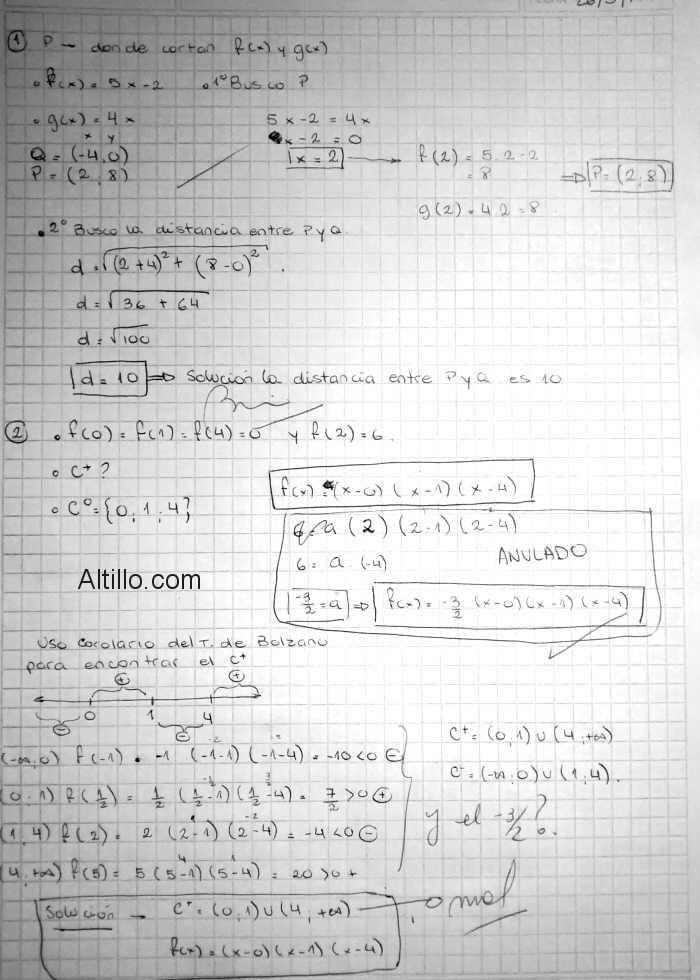 ① P — donde cortan f(x) y g(x)
• f(x) = 5x-2 • 1° Busco P
• g(x) = 4x 5x-2 = 4x
x y x-2 = 0
Q = (-4,0) x = 2 → f(2) = 5.2-2
P = (2,8) = 8 ⇒ P = (2,8)
g(2) = 4.2 = 8
• 2° Busco la distancia entre P y Q.
d = √(2+4)² + (8-0)².
d = √36 + 64
d = √100
d = 10 ⇒ Solución la distancia entre P y Q es 10
② • f(0) = f(1) = f(4) = 0 y f(2) = 6.
• C⁺?
f(x) = (x-0) (x-1) (x-4)
• C⁰ = {0,1,4}
6 = a (2) (2-1) (2-4)
6 = a . (-4) ANULADO
-3/2 = a ⇒ f(x) = -3/2 (x-0) (x-1) (x-4)
Altillo.com
Uso corolario del T. de Bolzano
para encontrar el C⁺
⊕ ⊕
0 1 4
⊖ ⊖
(-∞,0) f(-1) = -1 (-1-1) (-1-4) = -10 < 0 ⊖
(0,1) f(1/2) = 1/2 (1/2-1) (1/2-4) = 7/2 > 0 ⊕
(1,4) f(2) = 2 (2-1) (2-4) = -4 < 0 ⊖
(4,+∞) f(5) = 5 (5-1) (5-4) = 20 > 0 +
C⁺ = (0,1) ∪ (4,+∞)
C⁻ = (-∞,0) ∪ (1,4).
y el -3/2?
Solución — C⁺ = (0,1) ∪ (4,+∞)
f(x) = (x-0) (x-1) (x-4)
mal